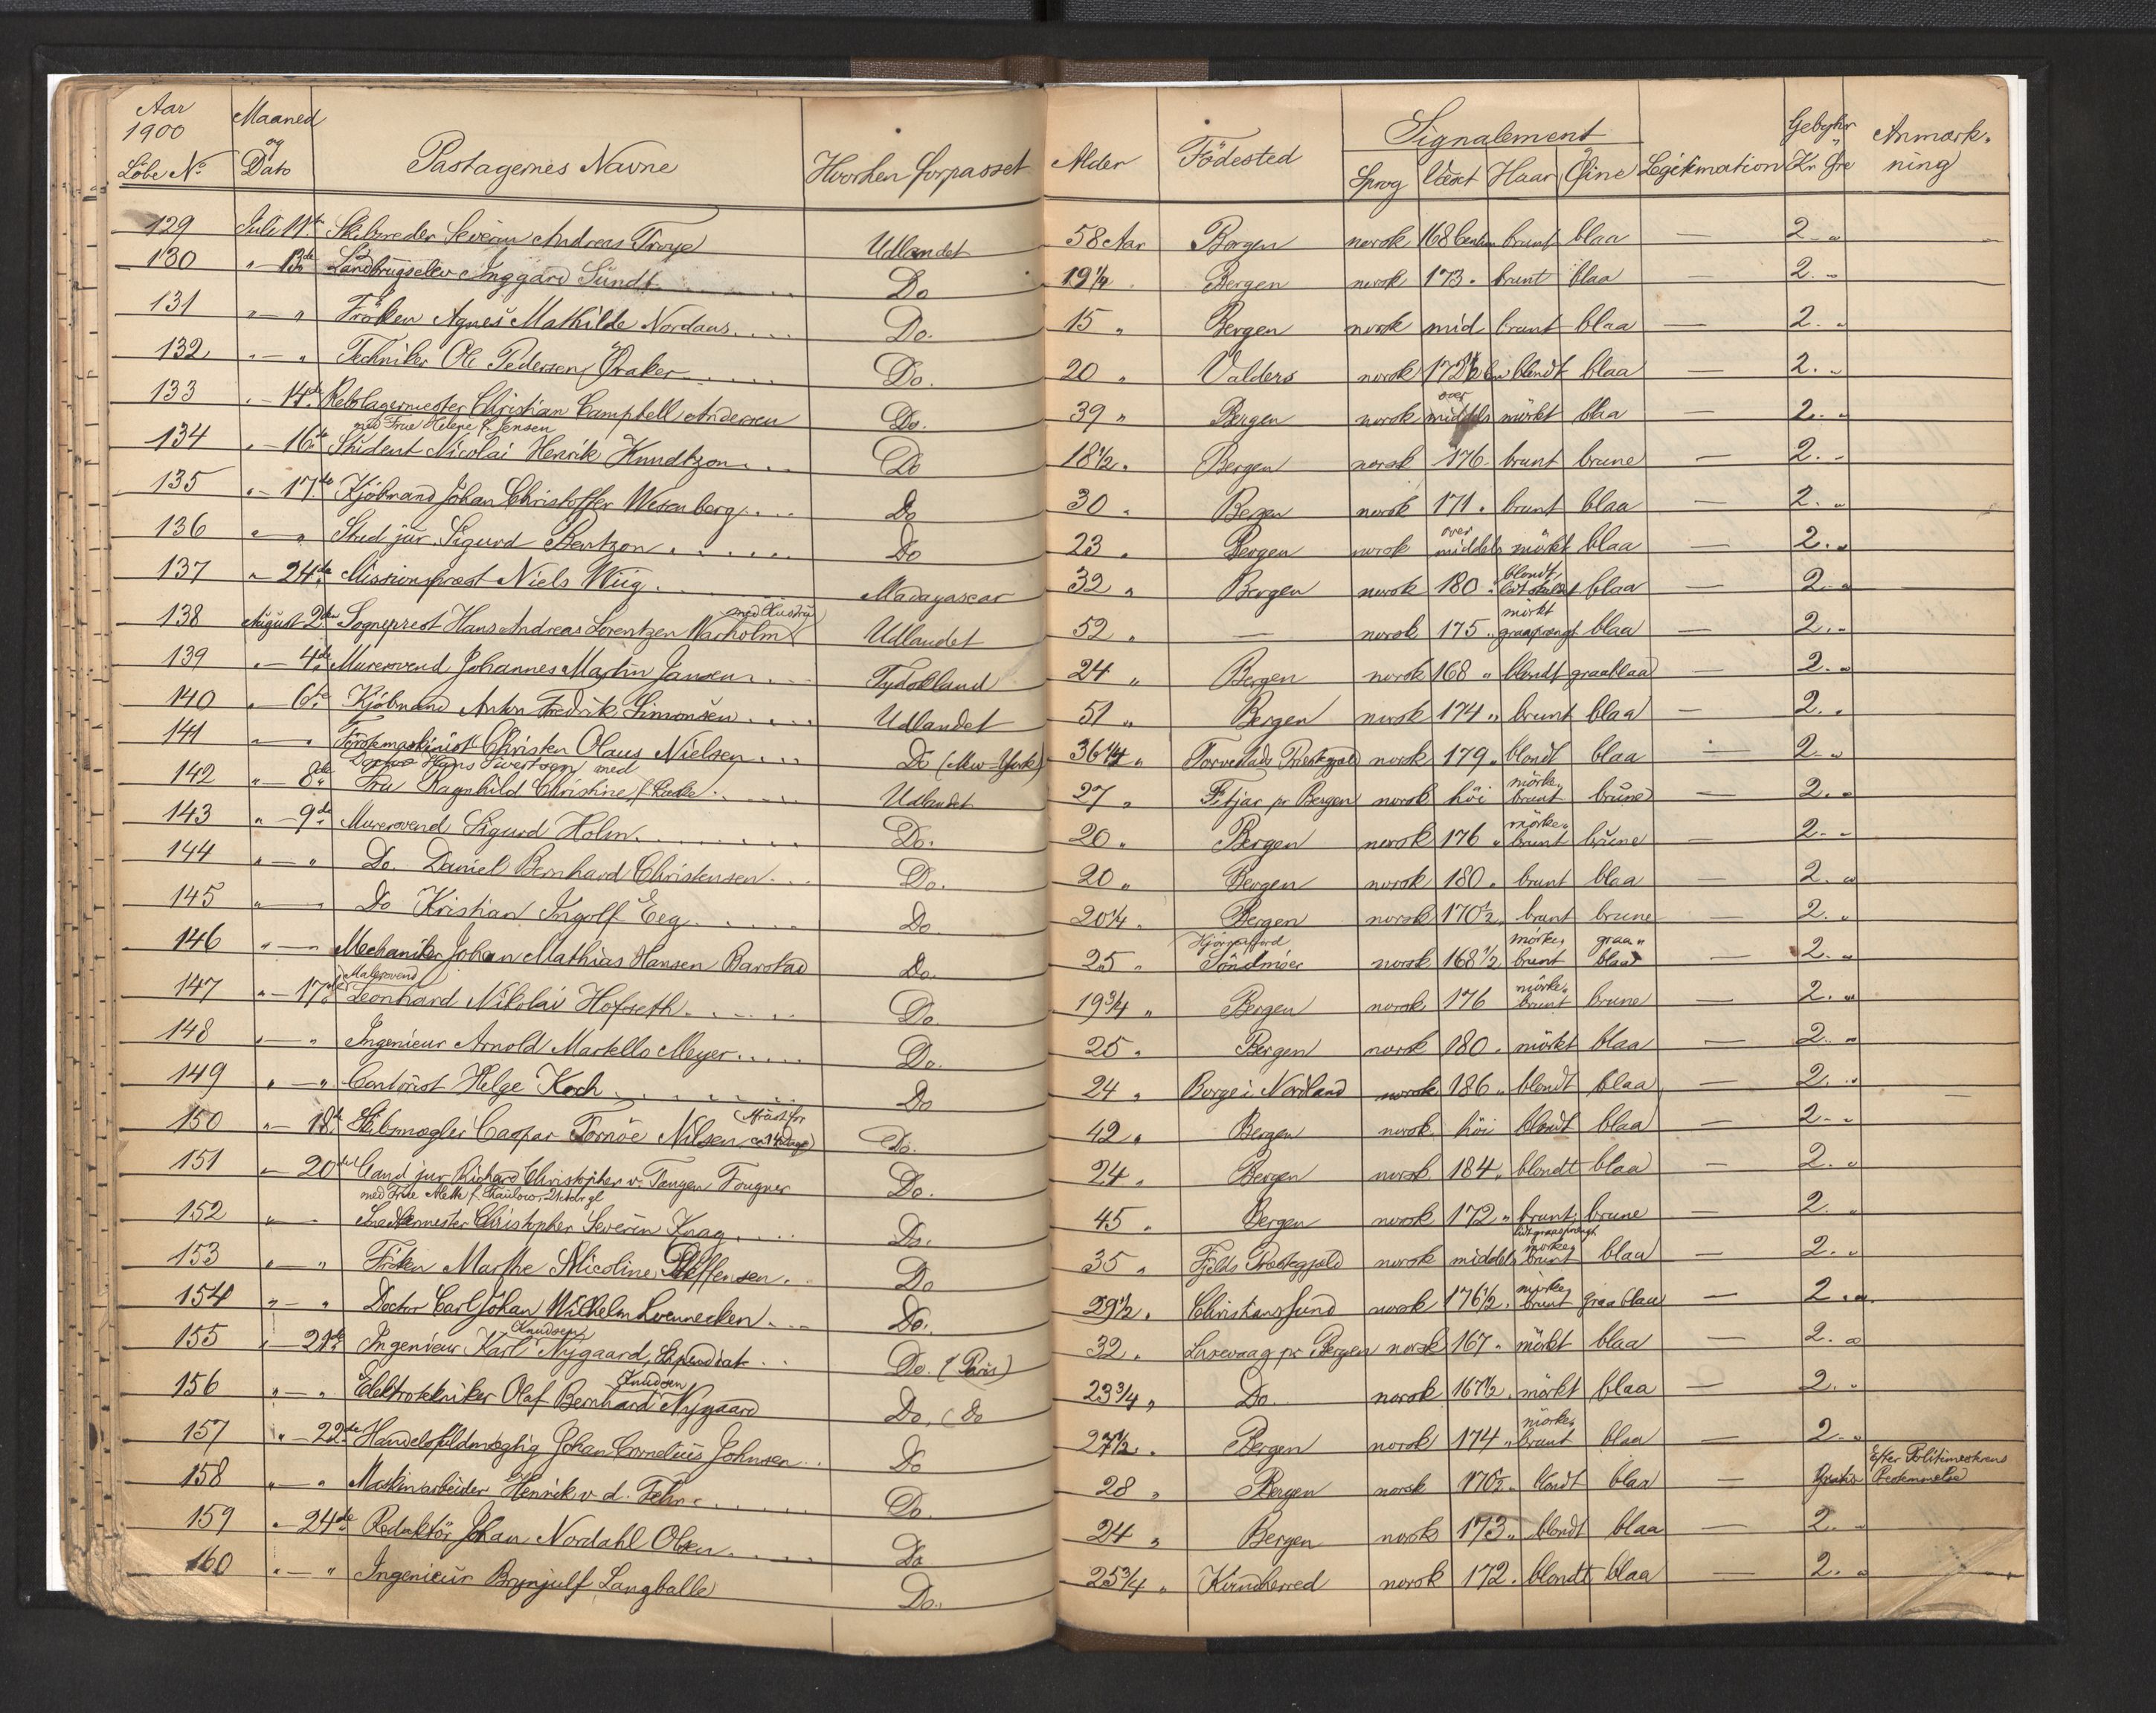 Aar 1900 Maaned og
Signalement Gebyhr Anmærk-
Löbe No. Dato Passagernes Navne Hvorhen forpasset Alder Födested Sprog Væxt Haar Öine Legitimation Kr. Öre ning
129 Juli 11te Skibsreder Severin Andreas Troye Udlandet 58 Aar Bergen norsk 168 brunt blaa — 2 "
130 " — 13de Landbrugselev Inggard Sundt Do 19 1/4 Bergen norsk 173 " brunt blaa — 2 "
131 " — " Fröken Agnes Mathilde Nordaas Do. 15 " Bergen norsk mid brunt blaa — 2 "
132 " — " Techniker Ole Pedersen Öraker Do. 20 " Valders norsk blondt blaa — 2 "
133 " — 14de Rebslagermester Christian Campbell Andersen Do. 39 " Bergen norsk over middels mörkt blaa — 2 "
med Frue Helene f. Jensen
134 " — 16de Student Nicolai Henrik Knudtzon Do 18 1/2 " Bergen norsk 176 brunt brune — 2 "
135 " — 17de Kjöbmand Johan Christoffer Wesenberg Do 30 " Bergen norsk 171 " brunt blaa — 2 "
136 " — " Stud jur. Sigurd Bentzon Do 23 " Bergen norsk over middels mörkt blaa — 2 "
137 " — 24de Missionsprest Niels Wiig Madagascar 32 " Bergen norsk 180 " blondt blaa — 2 "
138 August 2den Sogneprest Hans Andreas Lorentzen Warholm med Hustru Udlandet 52 " — norsk 175 " mörkt graasprengt blaa — 2 "
139 " — 4de Murersvend Johannes Martin Jansen Tydskland 24 " Bergen norsk 168 " blondt graablaa — 2 "
140 " — 6te Kjöbmand Anton Fredrik Simonsen Udlandet 51 " Bergen norsk 174 " brunt blaa — 2 "
141 " — " Förstemaskinist Christen Olaus Nielsen Do (New-York) 36 1/4 " Torvestads Prestegjeld norsk 179 " blondt blaa — 2 "
Hans Sivertsen med
142 " — 8de Fru Ragnhild Christine f. Udlandet 27 " Fitjar pr Bergen norsk höi mörke brunt brune — 2 "
143 " — 9de Murersvend Sigurd Holm Do. 20 " Bergen norsk 176 " mörke brunt brune — 2 "
144 " — " Do. Daniel Bernhard Christensen Do. 20 " Bergen norsk 180 " brunt blaa — 2 "
145 " — " Do Kristian Ingolf Eeg Do. 20 1/4 " Bergen norsk 170 1/2 " brunt brune — 2 "
146 " — " Mechaniker Johan Mathias Hansen Barstad Do. 25 " Hjörrafjord Söndmöer norsk 168 1/2 mörke brunt graa blaa — 2 "
147 " — 17de Malersvend Leonhard Nikolai Hofseth Do. 19 3/4 " Bergen norsk 176 mörke brunt brune — 2 "
148 " — " Ingenieur Arnold Martello Meyer Do. 25 " Bergen norsk 180 " mörkt blaa — 2 "
149 " — " Contorist Helge Koch Do 24 " Borge i Nordland norsk 186 " blondt blaa — 2 "
150 " — 18de Skibsmægler Caspar Tornöe Nilsen Do. 42 " Bergen norsk höi blondt blaa — 2 "
151 " — 20de Cand jur Richard Christopher v. Tangen Fougner Do. 24 " Bergen norsk 184 " blondt blaa — 2 "
med Frue Mette f. Thaulow
152 " — Christopher Severin Knag Do. 45 " Bergen norsk 172 " brunt brune — 2 "
153 " — " Fröken Marthe Nicoline Steffensen Do 35 " Fjelds Prestegjeld norsk middels mörke brunt lidt graasprengt blaa — 2 "
154 " — " Doctor Carl Johan Wilhelm Loennecken Do. 29 1/2 " Christianssund norsk 176 1/2 " mörke brunt graablaa — 2 "
155 " — 21de Ingenieur Karl Knudsen Nygaard, Stipendiat Do. (Paris) 32 " Laxevaag pr Bergen norsk 167 " mörkt blaa — 2 "
156 " — " Elektrotekniker Olaf Bernhard Knudsen Nygaard Do. (Do 23 3/4 " Do. norsk 167 1/2 " mörkt blaa — 2 "
157 " — 22de Handelsfuldmægtig Johan Cornelius Johnsen Do 27 1/2 " Bergen norsk 174 " mörke brunt blaa — 2 "
158 " — " Maskinarbeider Henrik v. d. Fehr Do. 28 " Bergen norsk 170 1/2 " blondt blaa — Gratis Efter Politimesterens Bestemmelse
159 " — 24de Redaktör Johan Nordahl Olsen Do 24 " Bergen norsk 173 " blondt blaa — 2 "
160 " — " Ingenieur Brynjulf Langballe Do. 25 3/4 " Kvindherred norsk 172 " blondt blaa — 2 "